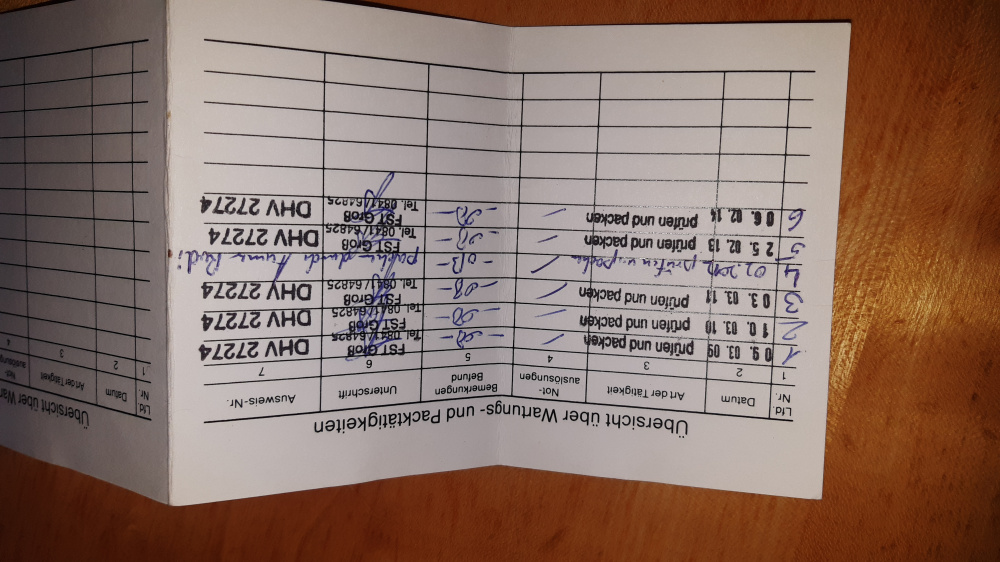 Übersicht über Wartungs- und Packtätigkeiten
Lfd. Nr. Datum Art der Tätigkeit Not- auslösungen Bemerkungen Befund Unterschrift Ausweis-Nr.
1 2 3 4 5 6 7
1 0 9. 03. 09 prüfen und packen / FST Groß Tel. 0841/64825 DHV 27274
2 1 0. 03. 10 prüfen und packen / FST Groß Tel. 0841/64825 DHV 27274
3 0 3. 03. 11 prüfen und packen / FST Groß Tel. 0841/64825 DHV 27274
4 prüfen u. packen / packen durch
5 2 5. 02. 13 prüfen und packen / FST Groß Tel. 0841/64825 DHV 27274
6 0 6. 02. 14 prüfen und packen / FST Groß Tel. 0841/64825 DHV 27274
Übersicht über War
Lfd. Nr. Datum Art der Tätigkeit Not- auslösung
1 2 3 4